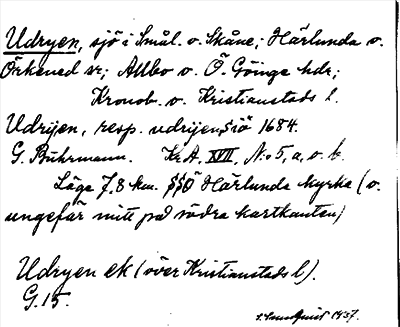 Udryen, sjö i Smål. o. Skåne; Härlunda o.
Örkened sn; Allbo o. Ö. Göinge hdr;
Kronob. o. Kristianstads l.
Udrijen, resp. udrijensiö 1684.
G. Buhrmann. Kr A. XVII, No 5, a, o. b.
Läge 7,8 km. SSÖ Härlunda kyrka (o.
ungefär mitt på södra kartkanten)
Udryen ek (över Kristianstads l).
G. 15.
1937.